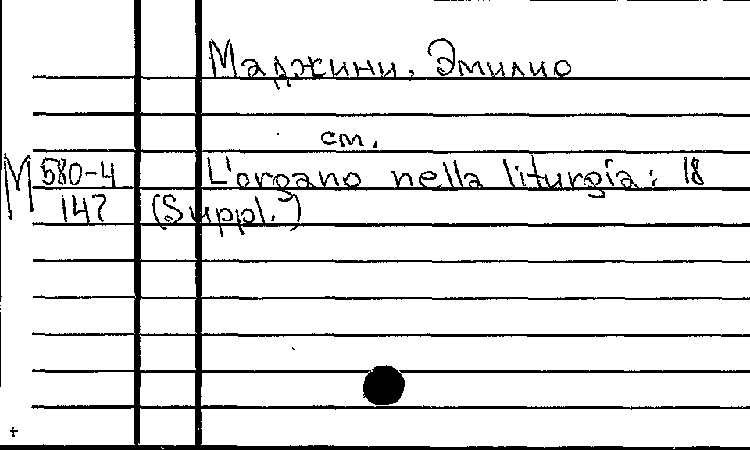 Маджини, Эмилио
см.
М 580-4 L'organo nella liturgia: 18
147 (Suppl.)
+